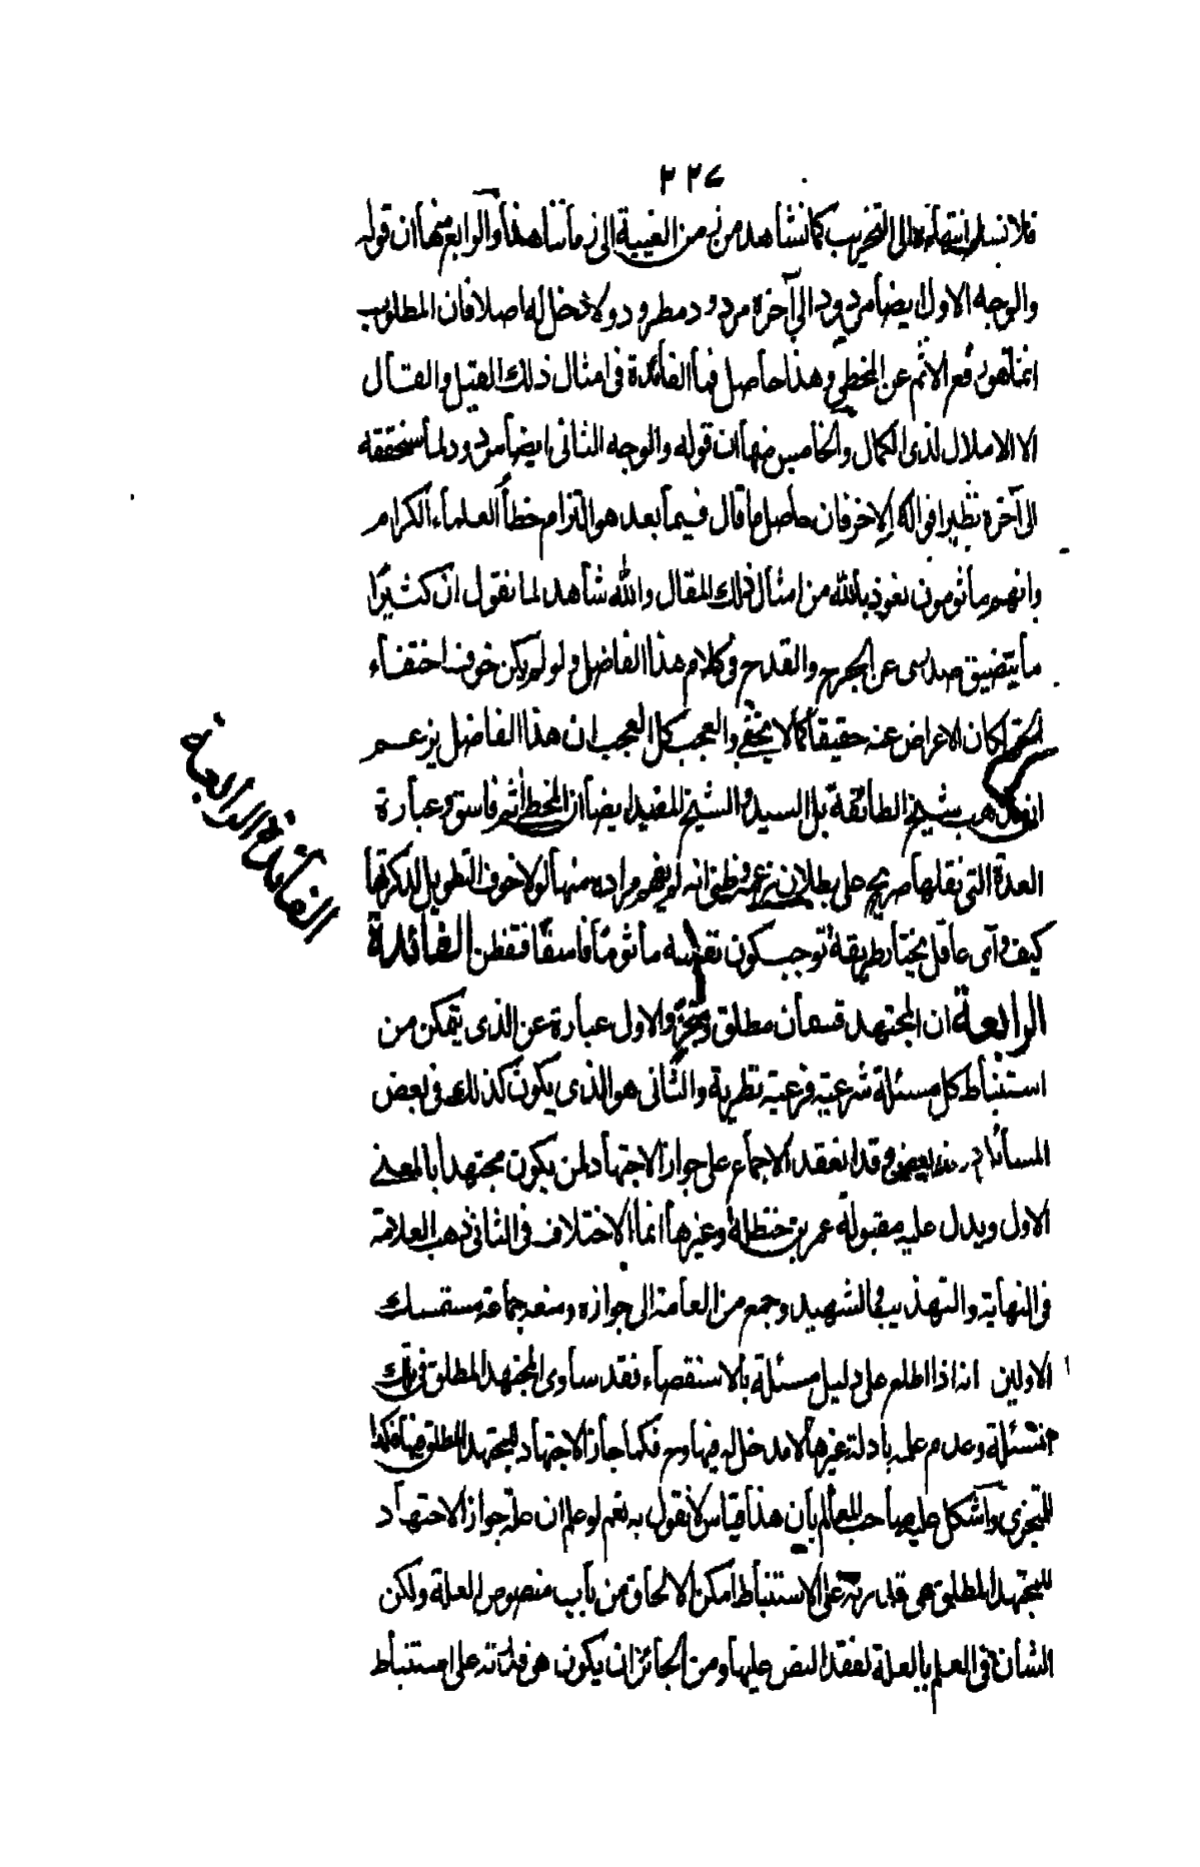 ٢٢٧
فلا نسلم انتهائه الى التخريب كما نشاهد من زمن الغيبة الى زماننا هذا والرابع منها ان قوله
والوجه الاول ايضا مردود الى آخره مردود مطرود ولا دخل له اصلا فان المطلوب
انما هو رفع الاثم عن المخطى وهذا حاصل فما الفائدة فى امثال ذلك القيل والقال
الا الاملال لذى الكمال والخامس منها ان قوله والوجه الثانى ايضا مردود لما سنحققه
الى آخره نظير اقواله الاخر فان حاصل ما قال فيما بعد هو التزام خطأ العلماء الكرام
وانهم ماثومون نعوذ بالله من امثال ذلك المقال والله شاهد لما نقول ان كثيرا
ما يتضيق صدرى عن الجرح والقدح فى كلام هذا الفاضل ولو لم يكن خوف اختفاء
الحق لكان الاعراض عنه حقيقا كما لا يخفى والعجب كل العجب ان هذا الفاضل يزعم
ان مذهب شيخ الطائفة بل السيد والشيخ المفيد ايضا ان المخطى آثم فاسق وعبارة
العدة التى نقلها صريح على بطلان زعمه وظنى انه لو يفهم مراده منها لولا خوف التطويل لذكرتها
كيف واى عاقل يختار طريقة توجب كون نفسه ماثوما فاسقا فتفطن الفائدة
الرابعة ان المجتهد قسمان مطلق ومتجزء والاول عبارة عن الذى يتمكن من
استنباط كل مسئلة شرعية فرعية نظرية والثانى هو الذى يكون كذلك فى بعض
المسائل دون بعض وقد انعقد الاجماع على جواز الاجتهاد لمن يكون مجتهدا بالمعنى
الاول ويدل عليه مقبولة عمر بن حنظلة وغيرها انما الاختلاف فى الثانى ذهب العلامة
فى النهاية والتهذيب والشهيد وجمع من العامة الى جوازه ومنعه جماعة مستمسك
الاولين انه اذا اطلع على دليل مسئلة بالاستقصاء فقد ساوى المجتهد المطلق فى تلك
المسئلة وعدم علمه بادلة غيرها لا مدخل له فيها وح فكما جاز الاجتهاد للمجتهد المطلق فيها فكذا
للمتجزى واشكل عليه صاحب المعالم بان هذا قياس لا نقول به نعم لو علم ان علة جواز الاجتهاد
للمجتهد المطلق هى قدرته على الاستنباط امكن الالحاق من باب منصوص العلة ولكن
الشان فى العلم بالعلة لفقد النص عليها ومن الجائز ان يكون هى قدرته على استنباط
الفائدة الرابعة